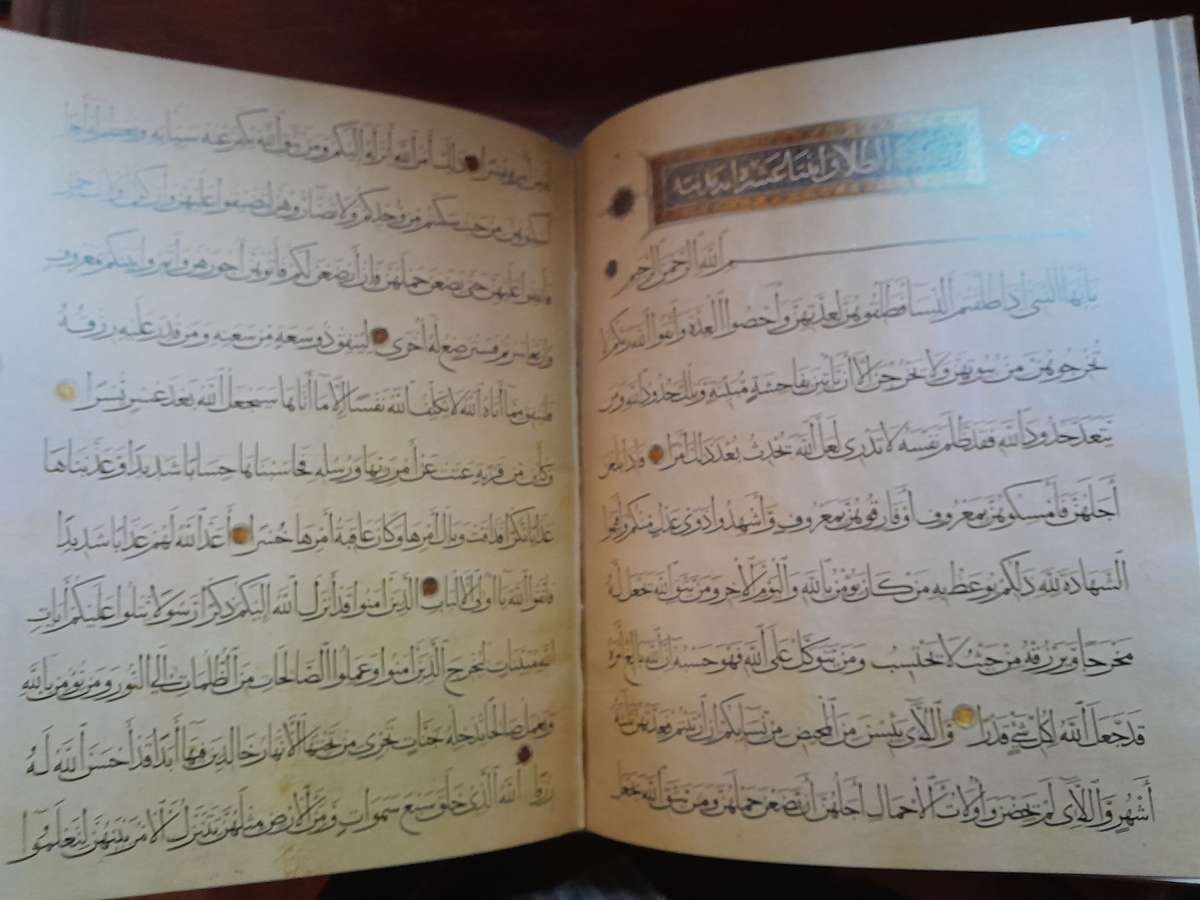 سورة الطلاق اثنتا عشرة آية مدنية
بسم الله الرحمن الرحيم
يا أيها النبي إذا طلقتم النساء فطلقوهن لعدتهن وأحصوا العدة واتقوا الله ربكم لا
تخرجوهن من بيوتهن ولا يخرجن إلا أن يأتين بفاحشة مبينة وتلك حدود الله ومن
يتعد حدود الله فقد ظلم نفسه لا تدري لعل الله يحدث بعد ذلك أمرا فإذا بلغن
أجلهن فأمسكوهن بمعروف أو فارقوهن بمعروف وأشهدوا ذوي عدل منكم وأقيموا
الشهادة لله ذلكم يوعظ به من كان يؤمن بالله واليوم الآخر ومن يتق الله يجعل له
مخرجا ويرزقه من حيث لا يحتسب ومن يتوكل على الله فهو حسبه إن الله بالغ أمره
قد جعل الله لكل شيء قدرا واللائي يئسن من المحيض من نسائكم إن ارتبتم فعدتهن ثلاثة
أشهر واللائي لم يحضن وأولات الأحمال أجلهن أن يضعن حملهن ومن يتق الله يجعل
له من أمره يسرا ذلك أمر الله أنزله إليكم ومن يتق الله يكفر عنه سيئاته ويعظم له أجرا
أسكنوهن من حيث سكنتم من وجدكم ولا تضاروهن لتضيقوا عليهن وإن كن أولات حمل
فأنفقوا عليهن حتى يضعن حملهن فإن أرضعن لكم فآتوهن أجورهن وأتمروا بينكم بمعروف
وإن تعاسرتم فسترضع له أخرى لينفق ذو سعة من سعته ومن قدر عليه رزقه
فلينفق مما آتاه الله لا يكلف الله نفسا إلا ما آتاها سيجعل الله بعد عسر يسرا
وكأين من قرية عتت عن أمر ربها ورسله فحاسبناها حسابا شديدا وعذبناها
عذابا نكرا فذاقت وبال أمرها وكان عاقبة أمرها خسرا أعد الله لهم عذابا شديدا
فاتقوا الله يا أولي الألباب الذين آمنوا قد أنزل الله إليكم ذكرا رسولا يتلوا عليكم آيات
الله مبينات ليخرج الذين آمنوا وعملوا الصالحات من الظلمات إلى النور ومن يؤمن بالله
ويعمل صالحا يدخله جنات تجري من تحتها الأنهار خالدين فيها أبدا قد أحسن الله له
رزقا الله الذي خلق سبع سموات ومن الأرض مثلهن يتنزل الأمر بينهن لتعلموا